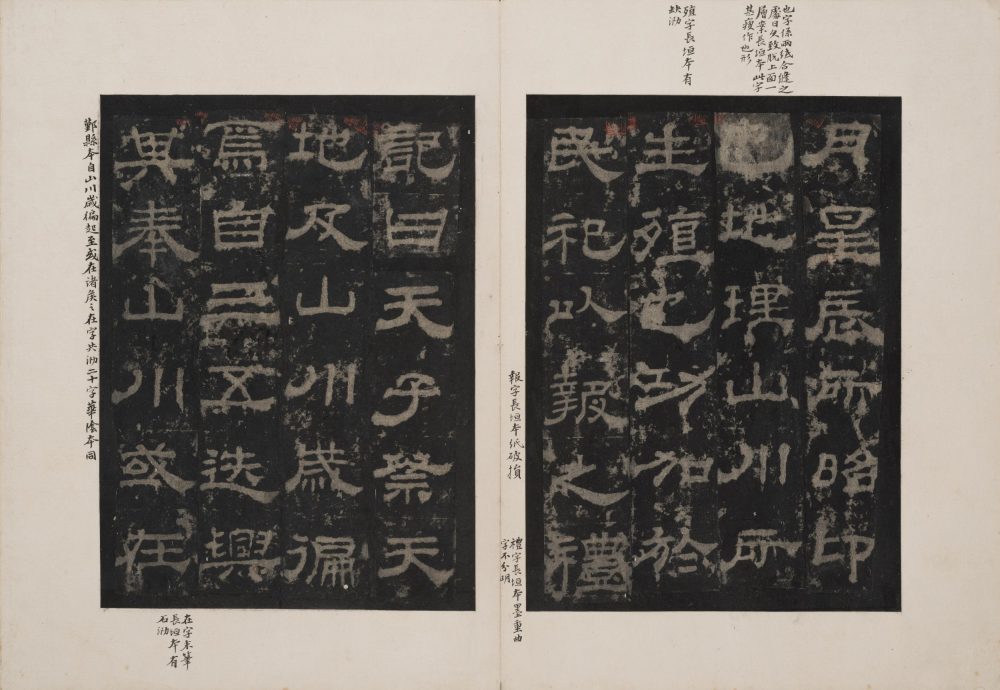 也字係兩紙合縫之
處日久致脫上面一
層案長垣本此字
甚瘦作也形
殖字長垣本有
缺泐
月星辰所昭卬
也地理山川所
生殖也功加於
民祀以報之禮
報字長垣本紙破損
禮字長垣本墨重曲
字不分明
記曰天子祭天
地及山川歲徧
焉自三五迭興
其奉山川或在
鄞縣本自山川歲徧起至或在諸矦之在字共泐二十字華陰本同
在字末筆
長垣本有
石泐